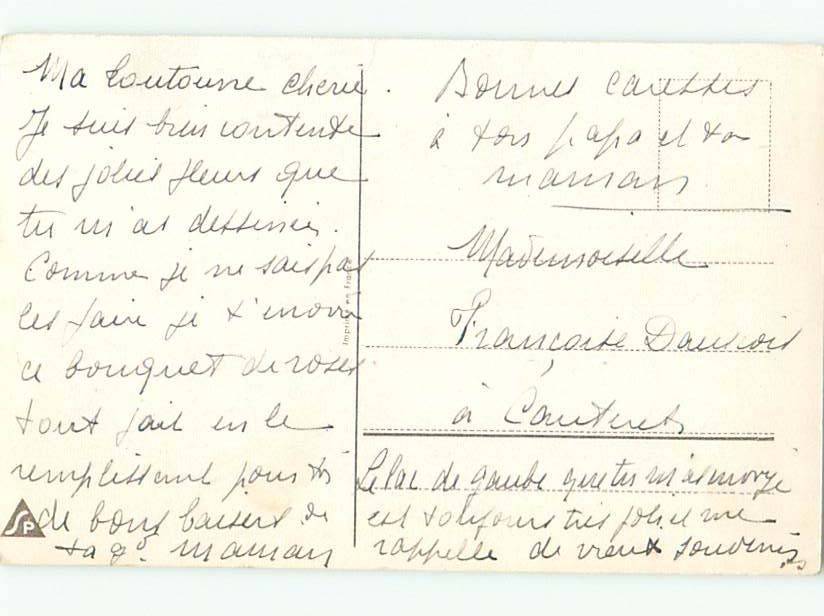 Ma toutoune cherie.
Je suis bien contente
des jolies fleurs que
tu m'as dessinées.
Comme je ne sais pas
les faire je t'envoie
ce bouquet de roses
tout fait en le
remplissant pour toi
de bons baisers de
ta gde maman
Bonnes caresses
à ton papa et ta
maman
Mademoiselle
Françoise
à Cauterets
Le lac de gaube que tu m'as envoyé
est toujours très joli et me
rappelle de vieux souvenirs
Imprimé en France
SP